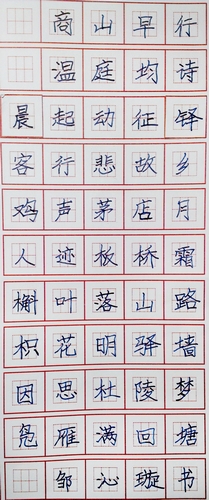 商山早行
温庭均诗
晨起动征铎
客行悲故乡
鸡声茅店月
人迹板桥霜
槲叶落山路
枳花明驿墙
因思杜陵梦
凫雁满回塘
邹沁璇书